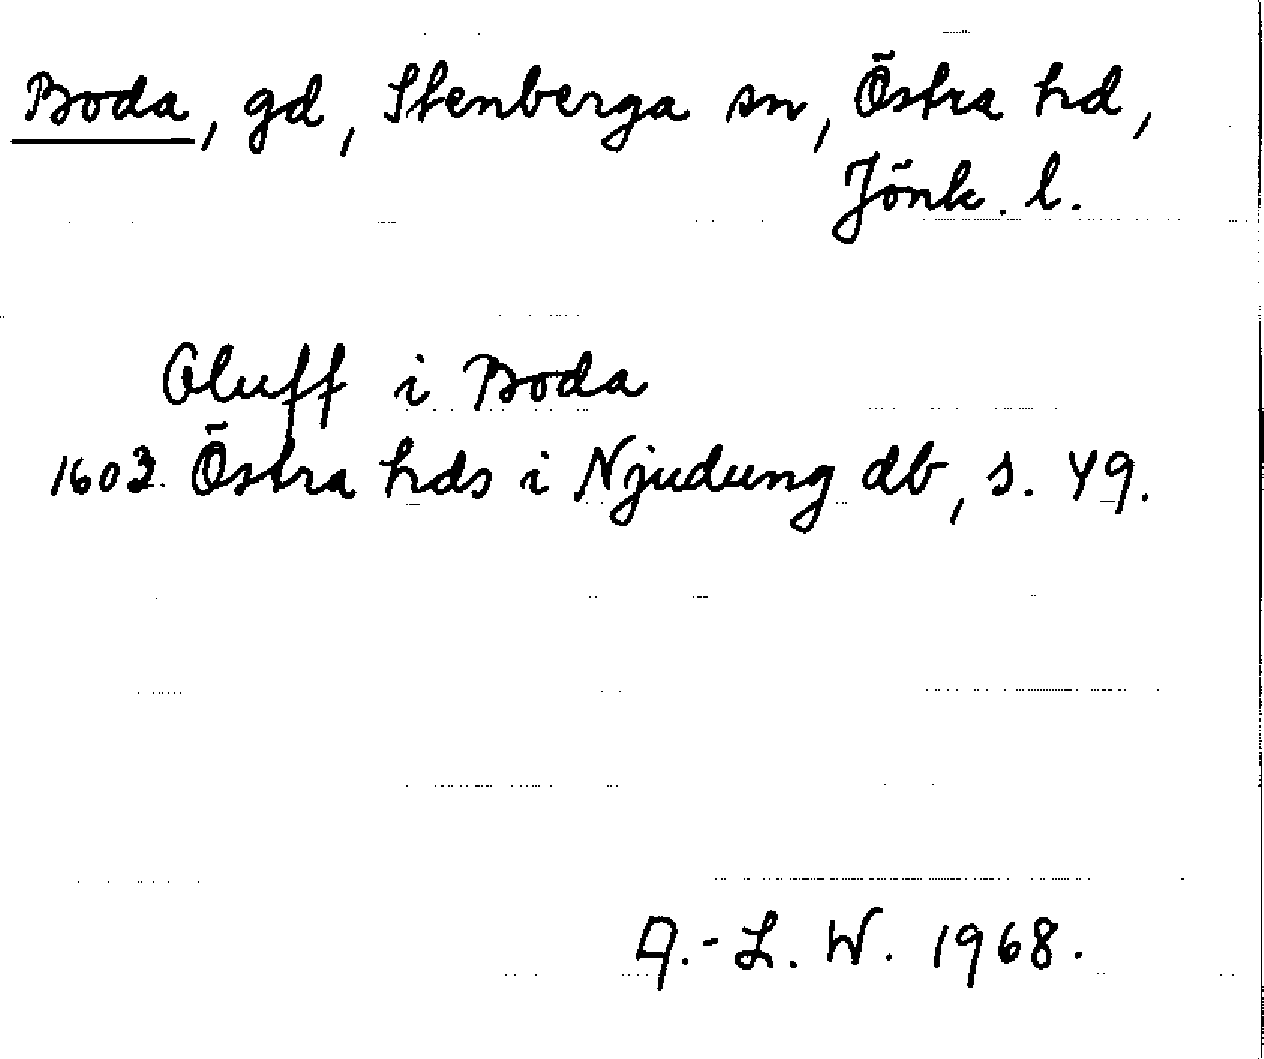 Boda, gd, Stenberga sn, Östra hd,
Jönk. l.
Oluff i Boda
1603. Östra hds i Njudung db, s. 49.
A.-L. W. 1968.